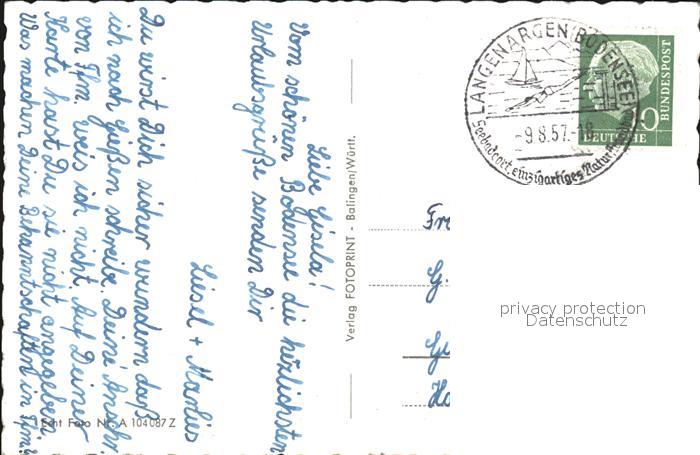 Liebe Gisela!
Vom schönen Bodensee die herzlichsten
Urlaubsgrüße senden Dir
Liesel + Markus
Du wirst Dich sicher wundern daß
ich nach Gießen schreibe. Deine Anschr.
von Ffm. weis ich nicht. Auf Deiner
Karte hast Du sie nicht angegeben
Was machen Deine Bekanntschaften in Ffm?
Echt Foto Nr. A 104087 Z
Verlag FOTOPRINT - Balingen/Württ.
LANGENARGEN (BODENSEE)
-9.8.57.-18
Seebadeort, einzigartiges Natur
DEUTSCHE
BUNDESPOST
10
Fr
G.
Gi
Ha
privacy protection
Datenschutz